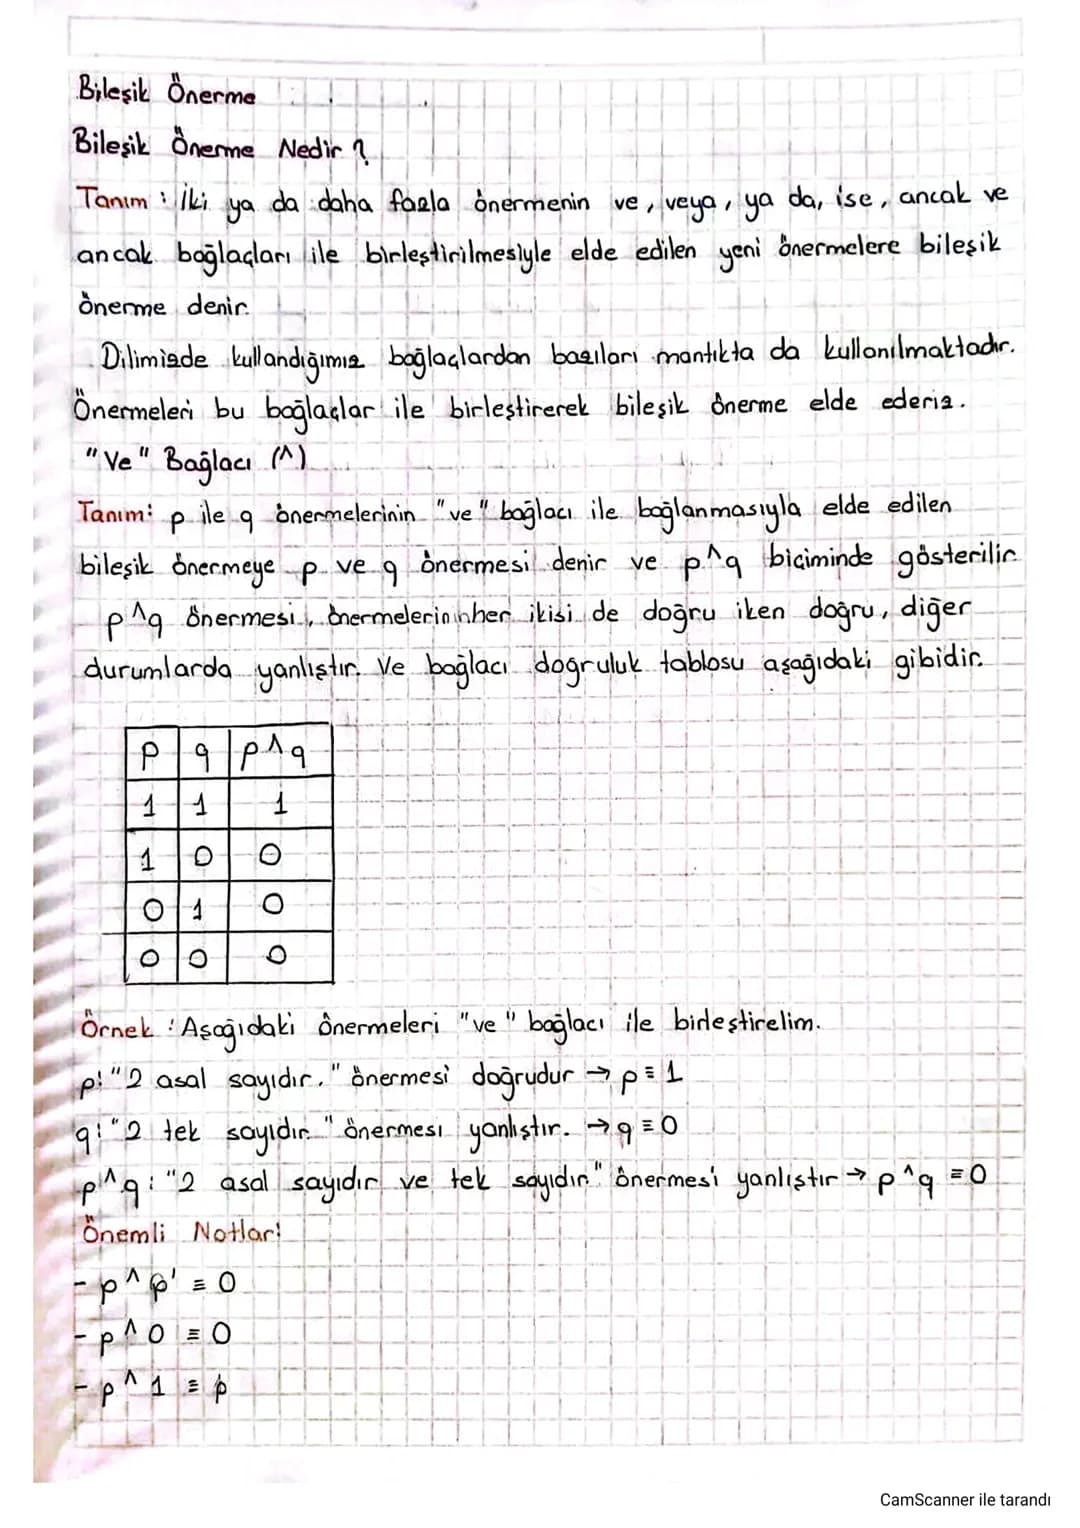 Bileşik Önerme
Bileşik Önerme Nedir ?
Tanım : İki ya da daha fazla önermenin ve, veya, ya da, ise, ancak ve
ancak bağlaçları ile birleştirilmesiyle elde edilen yeni önermelere bileşik
önerme denir.
Dilimizde kullandığımız bağlaçlardan bazıları mantıkta da kullanılmaktadır.
Önermeleri bu bağlaçlar ile birleştirerek bileşik önerme elde ederiz.
"Ve" Bağlacı (^)
Tanım: p ile q önermelerinin "ve" bağlacı ile bağlanmasıyla elde edilen
bileşik önermeye p ve q önermesi denir ve p^q biçiminde gösterilir.
p^q önermesi, önermelerin her ikisi de doğru iken doğru, diğer
durumlarda yanlıştır. Ve bağlacı doğruluk tablosu aşağıdaki gibidir.
p q p^q
1 1 1
1 0 0
0 1 0
0 0 0
Örnek : Aşağıdaki önermeleri "ve" bağlacı ile birleştirelim.
p: "2 asal sayıdır." önermesi doğrudur → p ≡ 1
q: "2 tek sayıdır." önermesi yanlıştır. → q ≡ 0
p^q: "2 asal sayıdır ve tek sayıdır" önermesi yanlıştır → p^q ≡ 0
Önemli Notlar:
- p ^ p' ≡ 0
- p ^ 0 ≡ 0
- p ^ 1 ≡ p
CamScanner ile tarandı